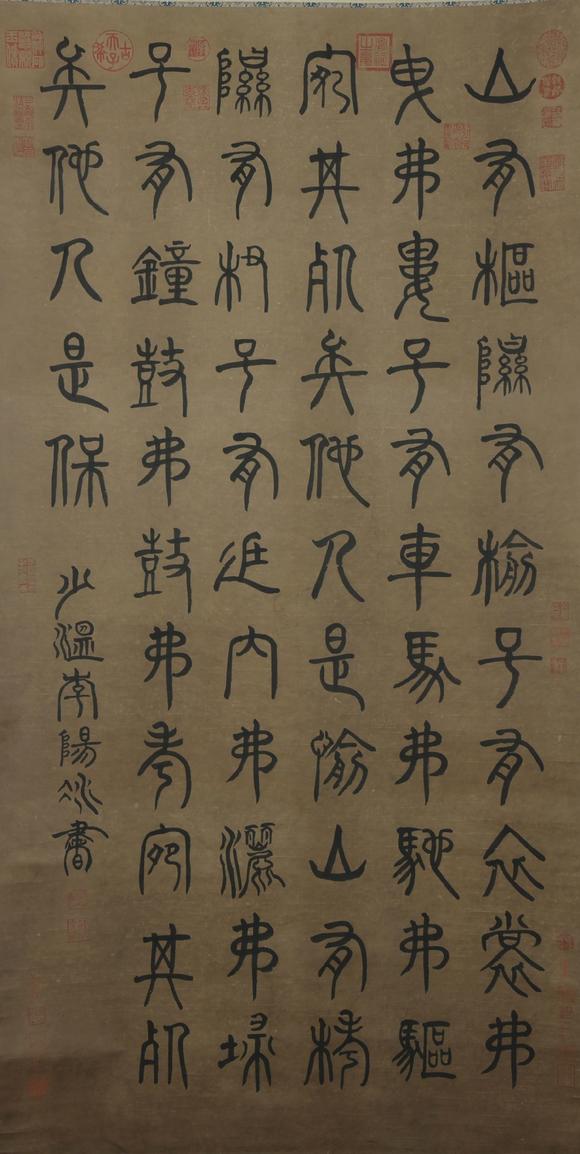 山有樞隰有榆子有衣裳弗
曳弗婁子有車馬弗馳弗驅
宛其死矣他人是愉山有栲
隰有杻子有廷內弗灑弗埽
子有鐘鼓弗鼓弗考宛其死
矣他人是保
少溫李陽冰書